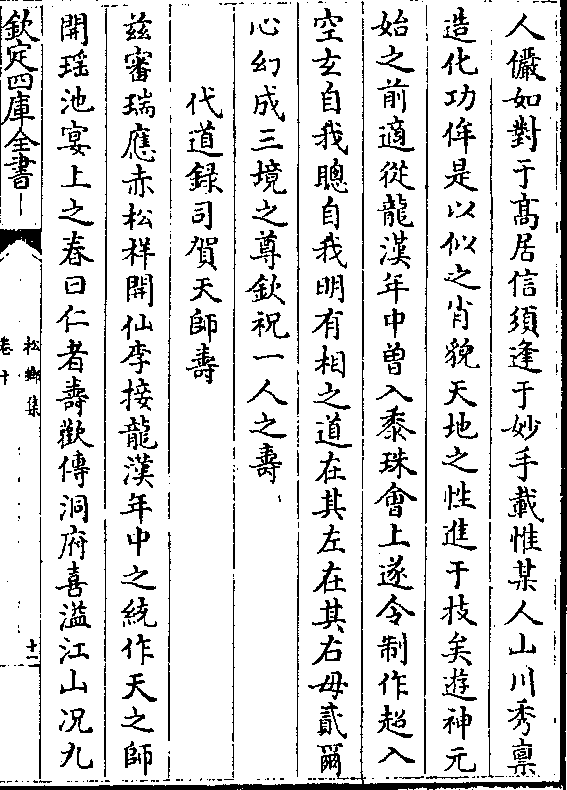 人儼如對于髙居信須逢于妙手載惟某人山川秀禀
造化功侔是以似之肖貌天地之性進于技矣遊神元
始之前適從龍漢年中曽入黍珠會上遂令制作超入
空玄自我聰自我明有相之道在其左在其右毋貳爾
心幻成三境之尊欽祝一人之壽
代道録司賀天師壽
兹審瑞應赤松祥開仙李接龍漢年中之統作天之師
開瑶池宴上之春曰仁者壽歡傳洞府喜溢江山况九
欽定四庫全書
松鄉集
卷十
十二